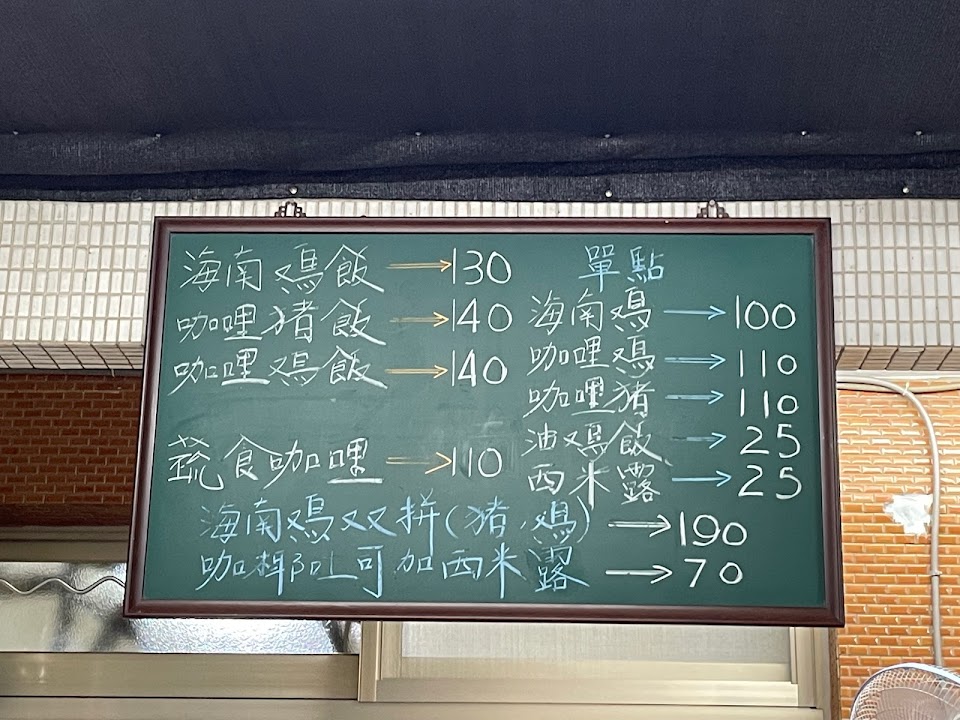 海南鸡飯→130
咖哩猪飯→140
咖哩鸡飯→140
蔬食咖哩→110
單點
海南鸡→100
咖哩鸡→110
咖哩猪→110
油鸡飯→25
西米露→25
海南鸡双拼(猪、鸡)→190
咖椰吐司加西米露→70